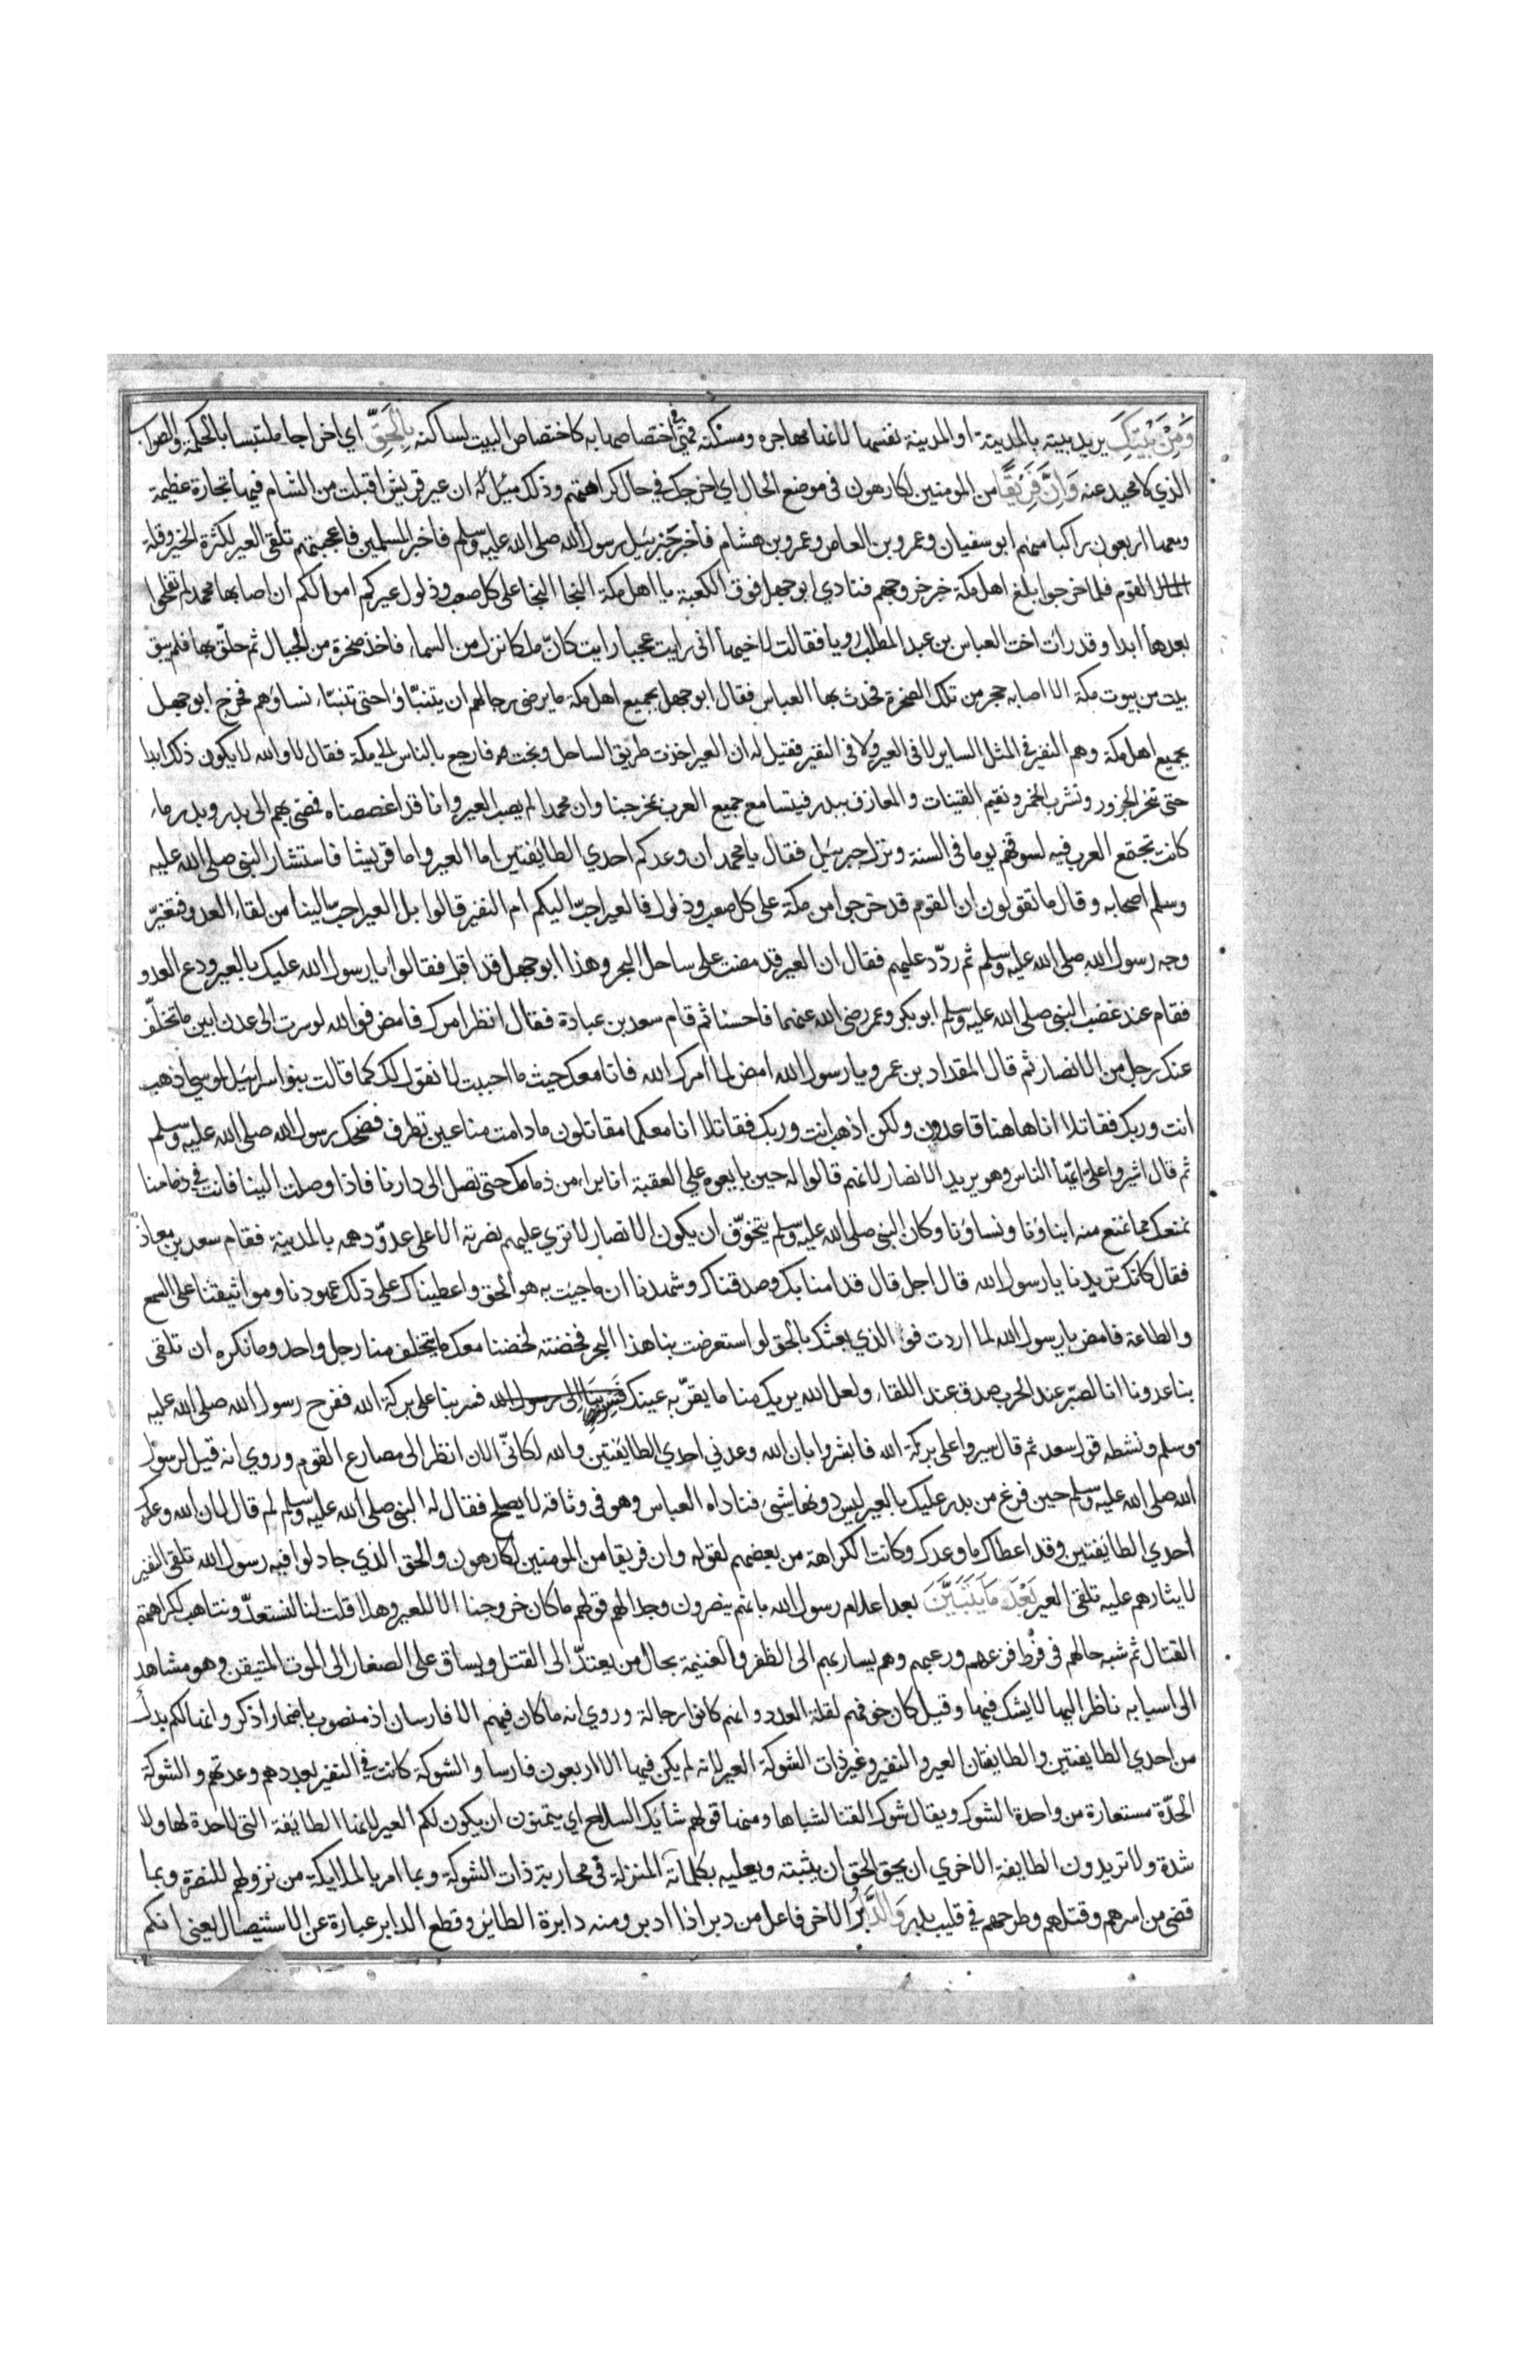 وَمِنْ بَيْتِكَ يريد بيته بالمدينة او المدينة نفسها لانها مهاجره ومسكنه فهي في اختصاصها به كاختصاص البيت لساكنه بِالْحَقِّ اي اخراجا ملتبسا بالحكمة والصواب
الذي لا محيد عنه وَاِنَّ فَرِيْقًا من المومنين لكارهون في موضع الحال اي اخرجك في حال كراهتهم وذلك ان عير قريش اقبلت من الشام فيها تجارة عظيمة
ومعها اربعون راكبا منهم ابو سفيان وعمرو بن العاص وعمرو بن هشام فاخبر جبرئيل رسول الله صلى الله عليه وسلم فاخبر المسلمين فاعجبتهم تلقي العير لكثرة الخير وقلة
القوم فلما خرجوا بلغ اهل مكة خبر خروجهم فنادي ابو جهل فوق الكعبة يا اهل مكة النجا النجا على كل صعب وذلول عيركم اموالكم ان اصابها محمد لم تفلحوا
بعدها ابدا وقد رات اخت العباس بن عبد المطلب رويا فقالت لاخيها انى رايت عجبا رايت كانّ ملكا نزل من السماء فاخذ صخرة من الجبال ثم حلّق بها فلم يبق
بيت من بيوت مكة الا اصابه حجر من تلك الصخرة فحدث بها العباس فقال ابو جهل بجميع اهل مكة ما يرضى رجالهم ان يتنبّاوا حتى تتنبّاء نساوهم فخرج ابو جهل
بجميع اهل مكة وهم النفير في المثل الساير لا في العير ولا في النفير فقيل له ان العير اخذت طريق الساحل ونجت فارجع بالناس الى مكة فقال لا والله لا يكون ذلك ابدا
حتى ننحر الجزور ونشرب الخمر ونقيم القينات والمعازف ببدر فيتسامع جميع العرب بمخرجنا وان محمدا لم يصب العير وانا قد اعضضناه فمضى بهم الى بدر وبدر ماء
كانت تجتمع العرب فيه لسوقهم يوما في السنة ونزل جبرئيل فقال يا محمد ان وعدكم احدي الطائفتين اما العير واما قريشا فاستشار النبى صلى الله عليه
وسلم اصحابه وقال ما تقولون ان القوم قد خرجوا من مكة على كل صعب وذلول فالعير احبّ اليكم ام النفير قالوا بل العير احبّ الينا من لقاء العدو فتغيّر
وجه رسول الله صلى الله عليه وسلم ثم ردّد عليهم فقال ان العير قد مضت على ساحل البحر وهذا ابو جهل قد اقبل فقالوا يا رسول الله عليك بالعير ودع العدو
فقام عند غضب النبى صلى الله عليه وسلم ابو بكر وعمر رضى الله عنهما فاحسنا ثم قام سعد بن عبادة فقال انظر امرك فامض فوالله لو سرت الى عدن ابين ما تخلّف
عنك رجل من الانصار ثم قال المقداد بن عمرو يا رسول الله امض لما امرك الله فانا معك حيث ما احببت لا نقول لك كما قالت بنو اسرائيل لموسى اذهب
انت وربك فقاتلا انا هاهنا قاعدون ولكن اذهب انت وربك فقاتلا انا معكما مقاتلون ما دامت منا عين تطرف فضحك رسول الله صلى الله عليه وسلم
ثم قال اشيروا علىّ ايّها الناس وهو يريد الانصار لانهم قالوا له حين بايعوه علي العقبة انا براء من ذمامك حتى تصل الى دارنا فاذا وصلت الينا فانت في ذمامنا
نمنعك مما نمنع منه ابناونا ونساونا وكان النبى صلى الله عليه وسلم يتخوّف ان يكون الانصار لا تري عليهم نصرته الا على عدوّ دهمه بالمدينة فقام سعد بن معاذ
فقال كانّك تريدنا يا رسول الله قال اجل قال قد امنا بك وصدقناك وشهدنا ان ما جيت به هو الحق واعطيناك على ذلك عهودنا ومواثيقنا على السمع
والطاعة فامض يا رسول الله لما اردت فو الذي بعثك بالحق لو استعرضت بنا هذا البحر فخضته لخضنا معك ما يتخلف منا رجل واحد وما نكره ان تلقى
بنا عدونا انا لصبّر عند الحرب صدق عند اللقاء ولعل الله يريك منا ما يقرّ به عينك فسر بنا على بركة الله ففرح رسول الله صلى الله عليه
وسلم ونشطه قول سعد ثم قال سيروا على بركة الله فابشروا بان الله وعدني احدي الطايفتين والله لكانّى الان انظر الى مصارع القوم وروي انه قيل لرسول
الله صلى الله عليه وسلم حين فرغ من بدر عليك بالعير ليس دونها شيء فناداه العباس وهو في وثاقه لا يصلح فقال له النبى صلى الله عليه وسلم لم قال لان الله وعدك
احدي الطايفتين وقد اعطاك ما وعدك وكانت الكراهة من بعضهم لقوله وان فريقا من المومنين لكارهون والحق الذي جادلوا فيه رسول الله تلقي النفير
لايثارهم عليه تلقى العير بَعْدَ مَا تَبَيَّنَ بعد اعلام رسول الله بانهم ينصرون وجدالهم قولهم ما كان خروجنا الا للعير وهلا قلت لنا لنستعدّ ونتاهب لكراهتهم
القتال ثم شبه حالهم في فرط فزعهم ورعبهم وهم يسار بهم الى الظفر والغنيمة بحال من يعتلّ الى القتل ويساق على الصغار الى الموت المتيقن وهو مشاهد
الى اسبابه ناظر اليها لا يشك فيها وقيل كان خوفهم لقلة العدد وانهم كانوا رجالة وروي انه ما كان فيهم الا فارسان اذ منصوب باضمار اذكر وانها لكم بدل
من احدي الطايفتين والطايفتان العير والنفير وغير ذات الشوكة العير لانه لم يكن فيها الا اربعون فارسا والشوكة كانت في النفير بعددهم وعدتهم والشوكة
الحدّة مستعارة من واحدة الشوك ويقال شوك القنا لشباها ومنها قولهم شايك السلاح اي يتمنون ان يكون لكم العير لانها الطايفة التى لا حدة لها ولا
شدة ولا تريدون الطايفة الاخري ان يحق الحق ان يثبته ويعليه بكلماته المنزلة في محاربة ذات الشوكة وبما امر بالملايكة من نزولهم للنصرة وبما
قضى من اسرهم وقتلهم وطرحهم في قليب بدر وَالدَّابِرُ الاخر فاعل من دبر اذا ادبر ومنه دابرة الطائر وقطع الدابر عبارة عن الاستيصال يعني انكم